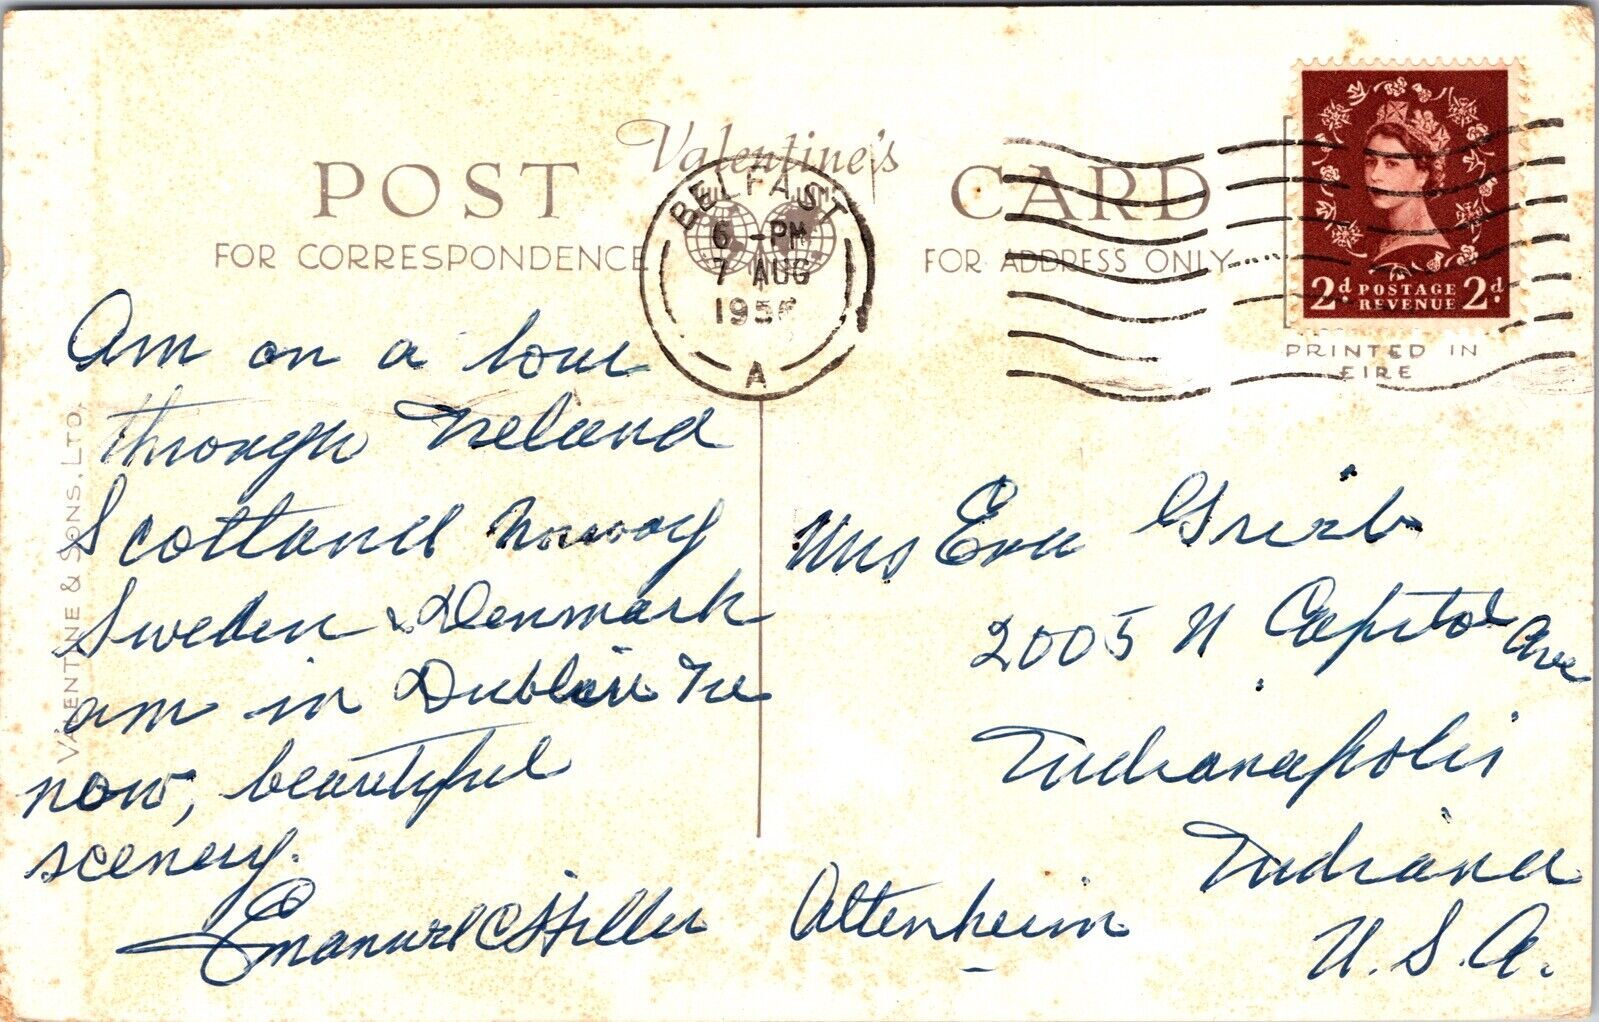 POST Valentine's CARD
FOR CORRESPONDENCE
FOR ADDRESS ONLY
BELFAST
6 - PM
7 AUG
1956
A
2d POSTAGE REVENUE 2d
PRINTED IN
EIRE
VALENTINE & SONS, LTD.
Am on a tour
through Ireland
Scotland Norway
Sweden & Denmark
am in Dublin Ire
now, beautiful
scenery.
Emanuel C Hiller
Mrs Eva
2005 N Capitol Ave
Indianapolis
Indiana
U.S.A.
Altenheim